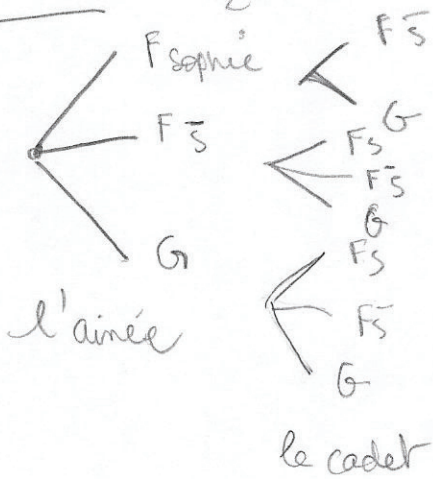 2
F sophie
F s̄
G
l'ainée
F s̄
G
Fs
F s̄
G
Fs
F s̄
G
le cadet